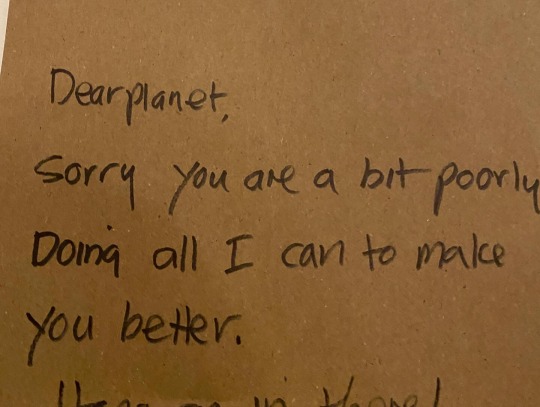 Dear planet,
Sorry you are a bit poorly
Doing all I can to make
you better.
in there!